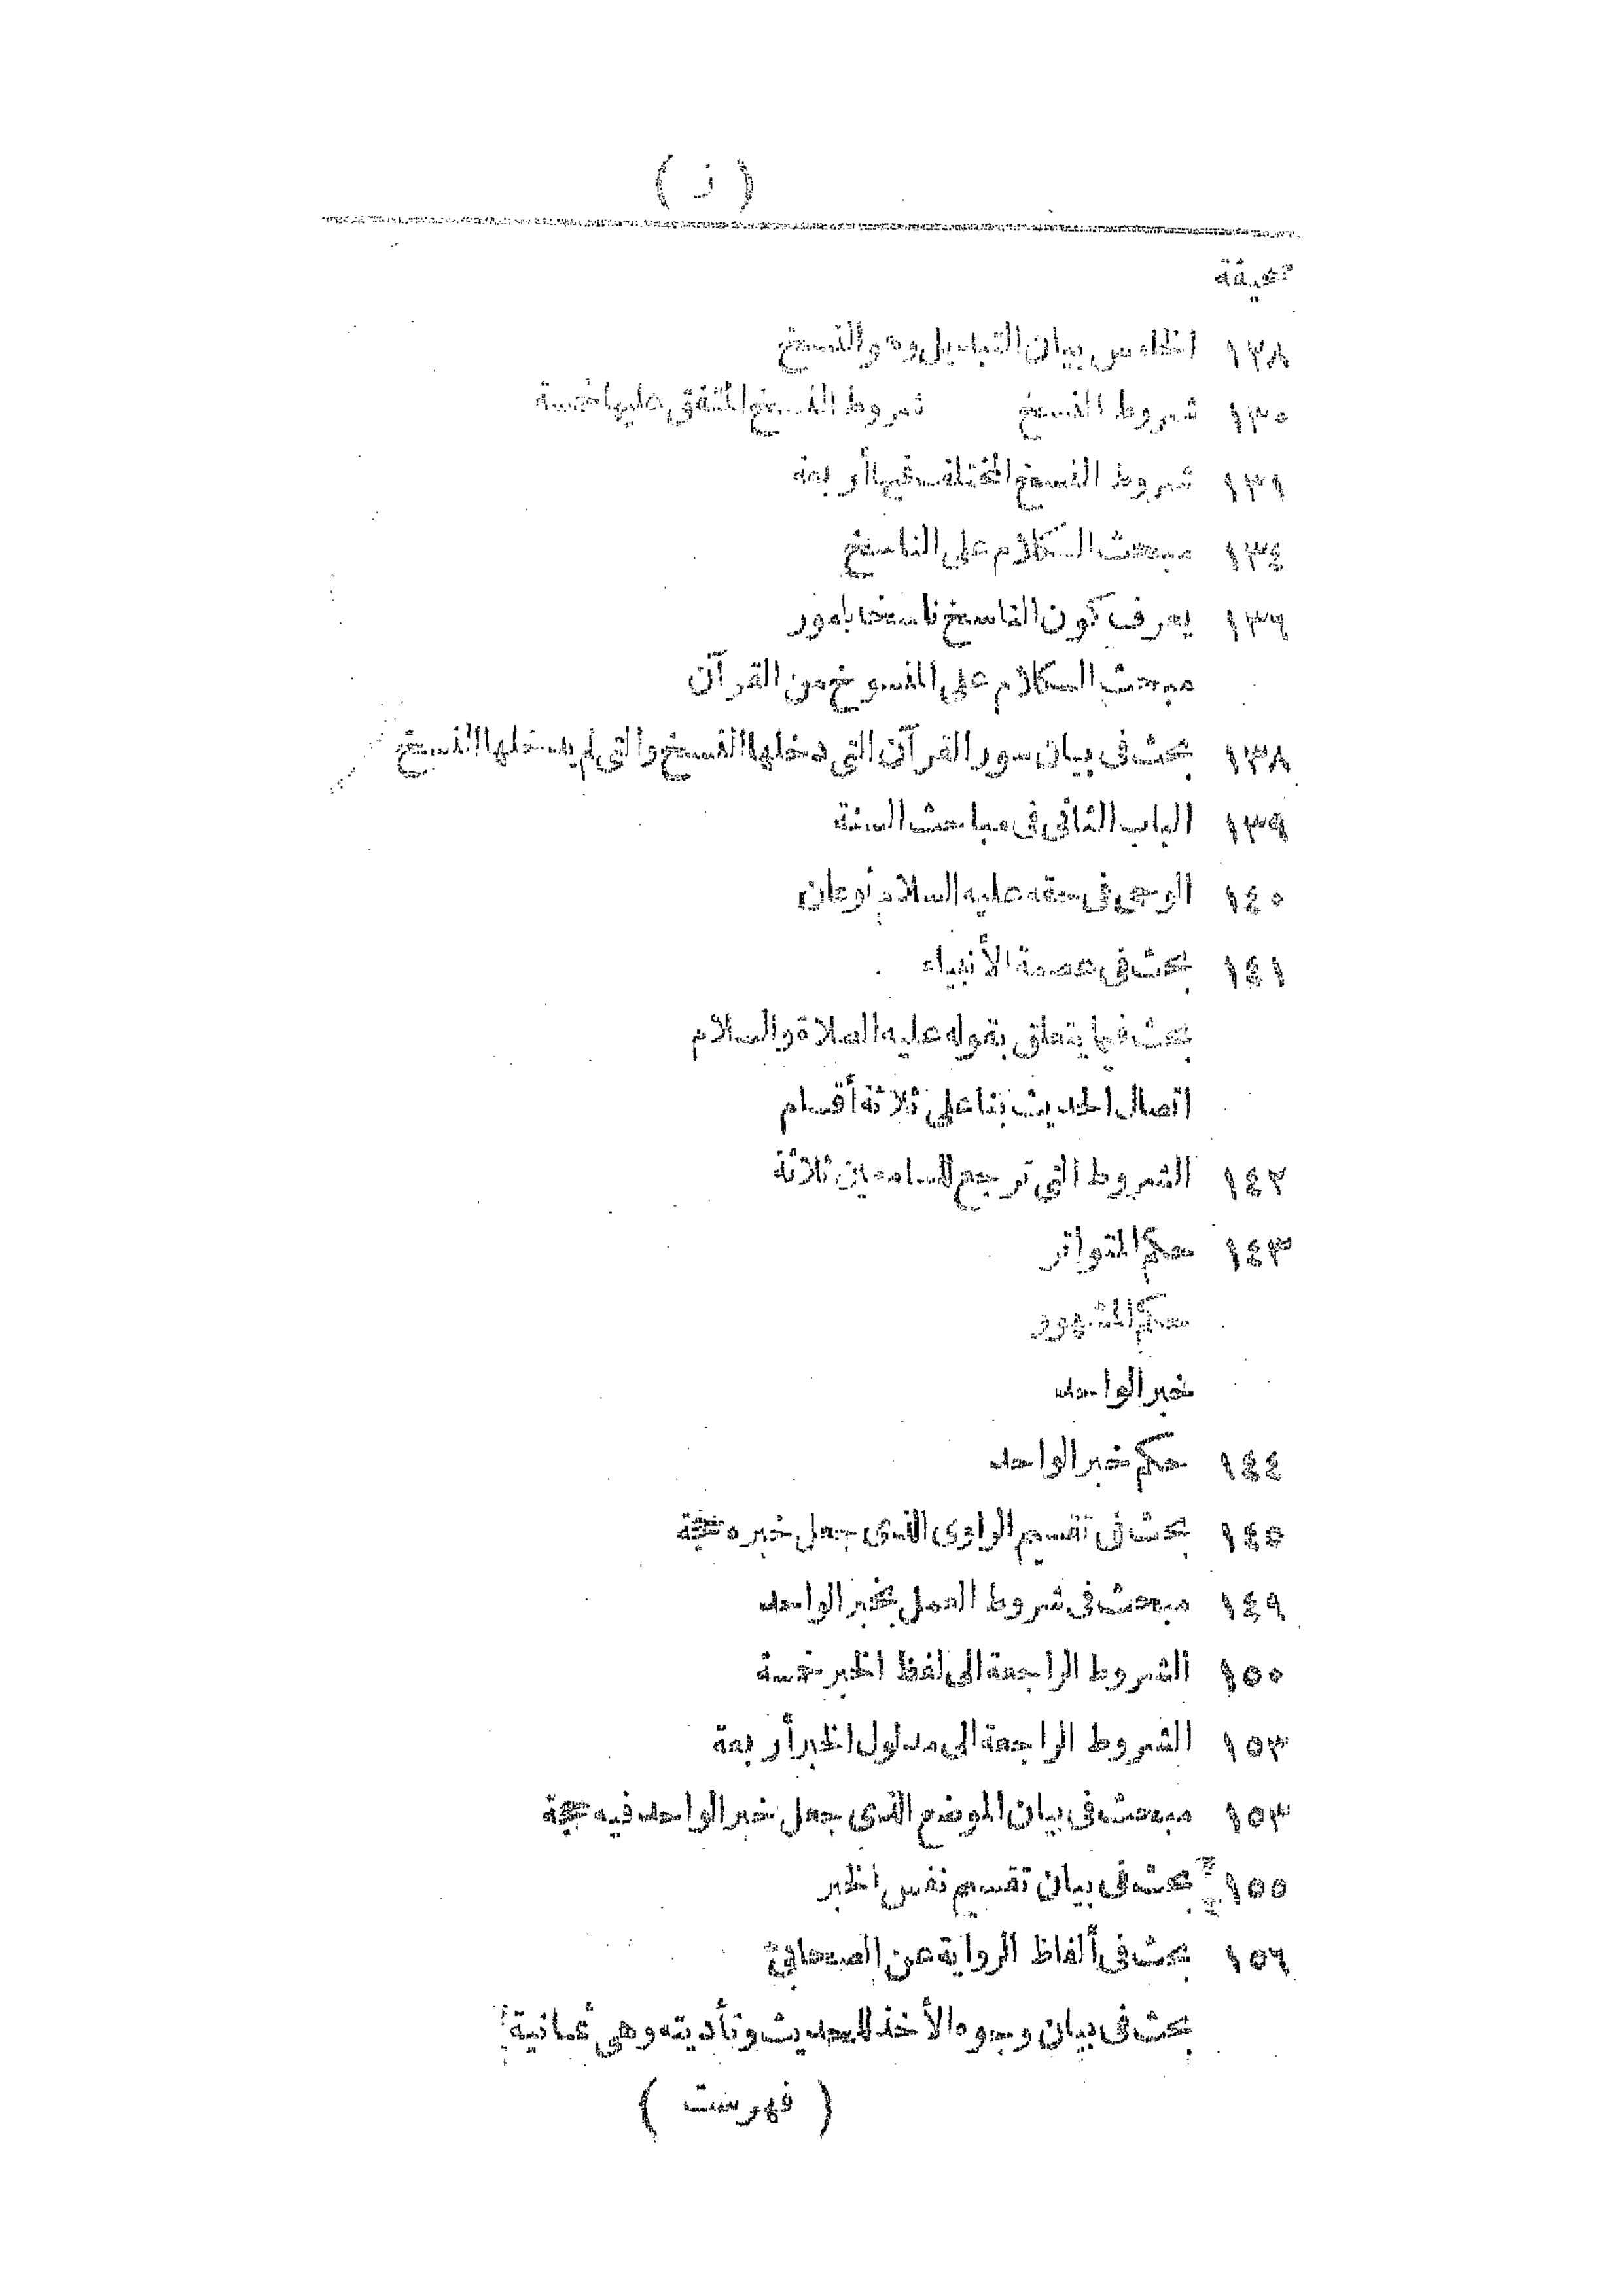 ( ز )
صحيفة
١٢٨ الخامس بيان التبديل وهو النسخ
١٣٠ شروط النسخ شروط النسخ المتفق عليها خمسة
١٣١ شروط النسخ المختلف فيها أربعة
١٣٤ مبحث الكلام على الناسخ
١٣٦ يعرف كون الناسخ ناسخا بامور
مبحث الكلام على المنسوخ من القرآن
١٣٨ بحث فى بيان سور القرآن التى دخلها النسخ والتى لم يدخلها النسخ
١٣٩ الباب الثانى فى مباحث السنة
١٤٠ الوحى فى حقه عليه السلام نوعان
١٤١ بحث فى عصمة الأنبياء
بحث فيما يتعلق بقوله عليه الصلاة والسلام
اتصال الحديث بنا على ثلاثة أقسام
١٤٢ الشروط التى ترجع للسامعين ثلاثة
١٤٣ حكم المتواتر
حكم المشهور
خبر الواحد
١٤٤ حكم خبر الواحد
١٤٥ بحث فى تقسيم الراوى الذى جعل خبره حجة
١٤٩ مبحث فى شروط العمل بخبر الواحد
١٥٠ الشروط الراجعة الى لفظ الخبر خمسة
١٥٣ الشروط الراجعة الى مدلول الخبر أربعة
١٥٣ مبحث فى بيان الموضع الذى جعل خبر الواحد فيه حجة
١٥٥ بحث فى بيان تقسيم نفس الخبر
١٥٦ بحث فى ألفاظ الرواية عن الصحابى
بحث فى بيان وجوه الأخذ للحديث وتأديته وهى ثمانية
( فهرست )